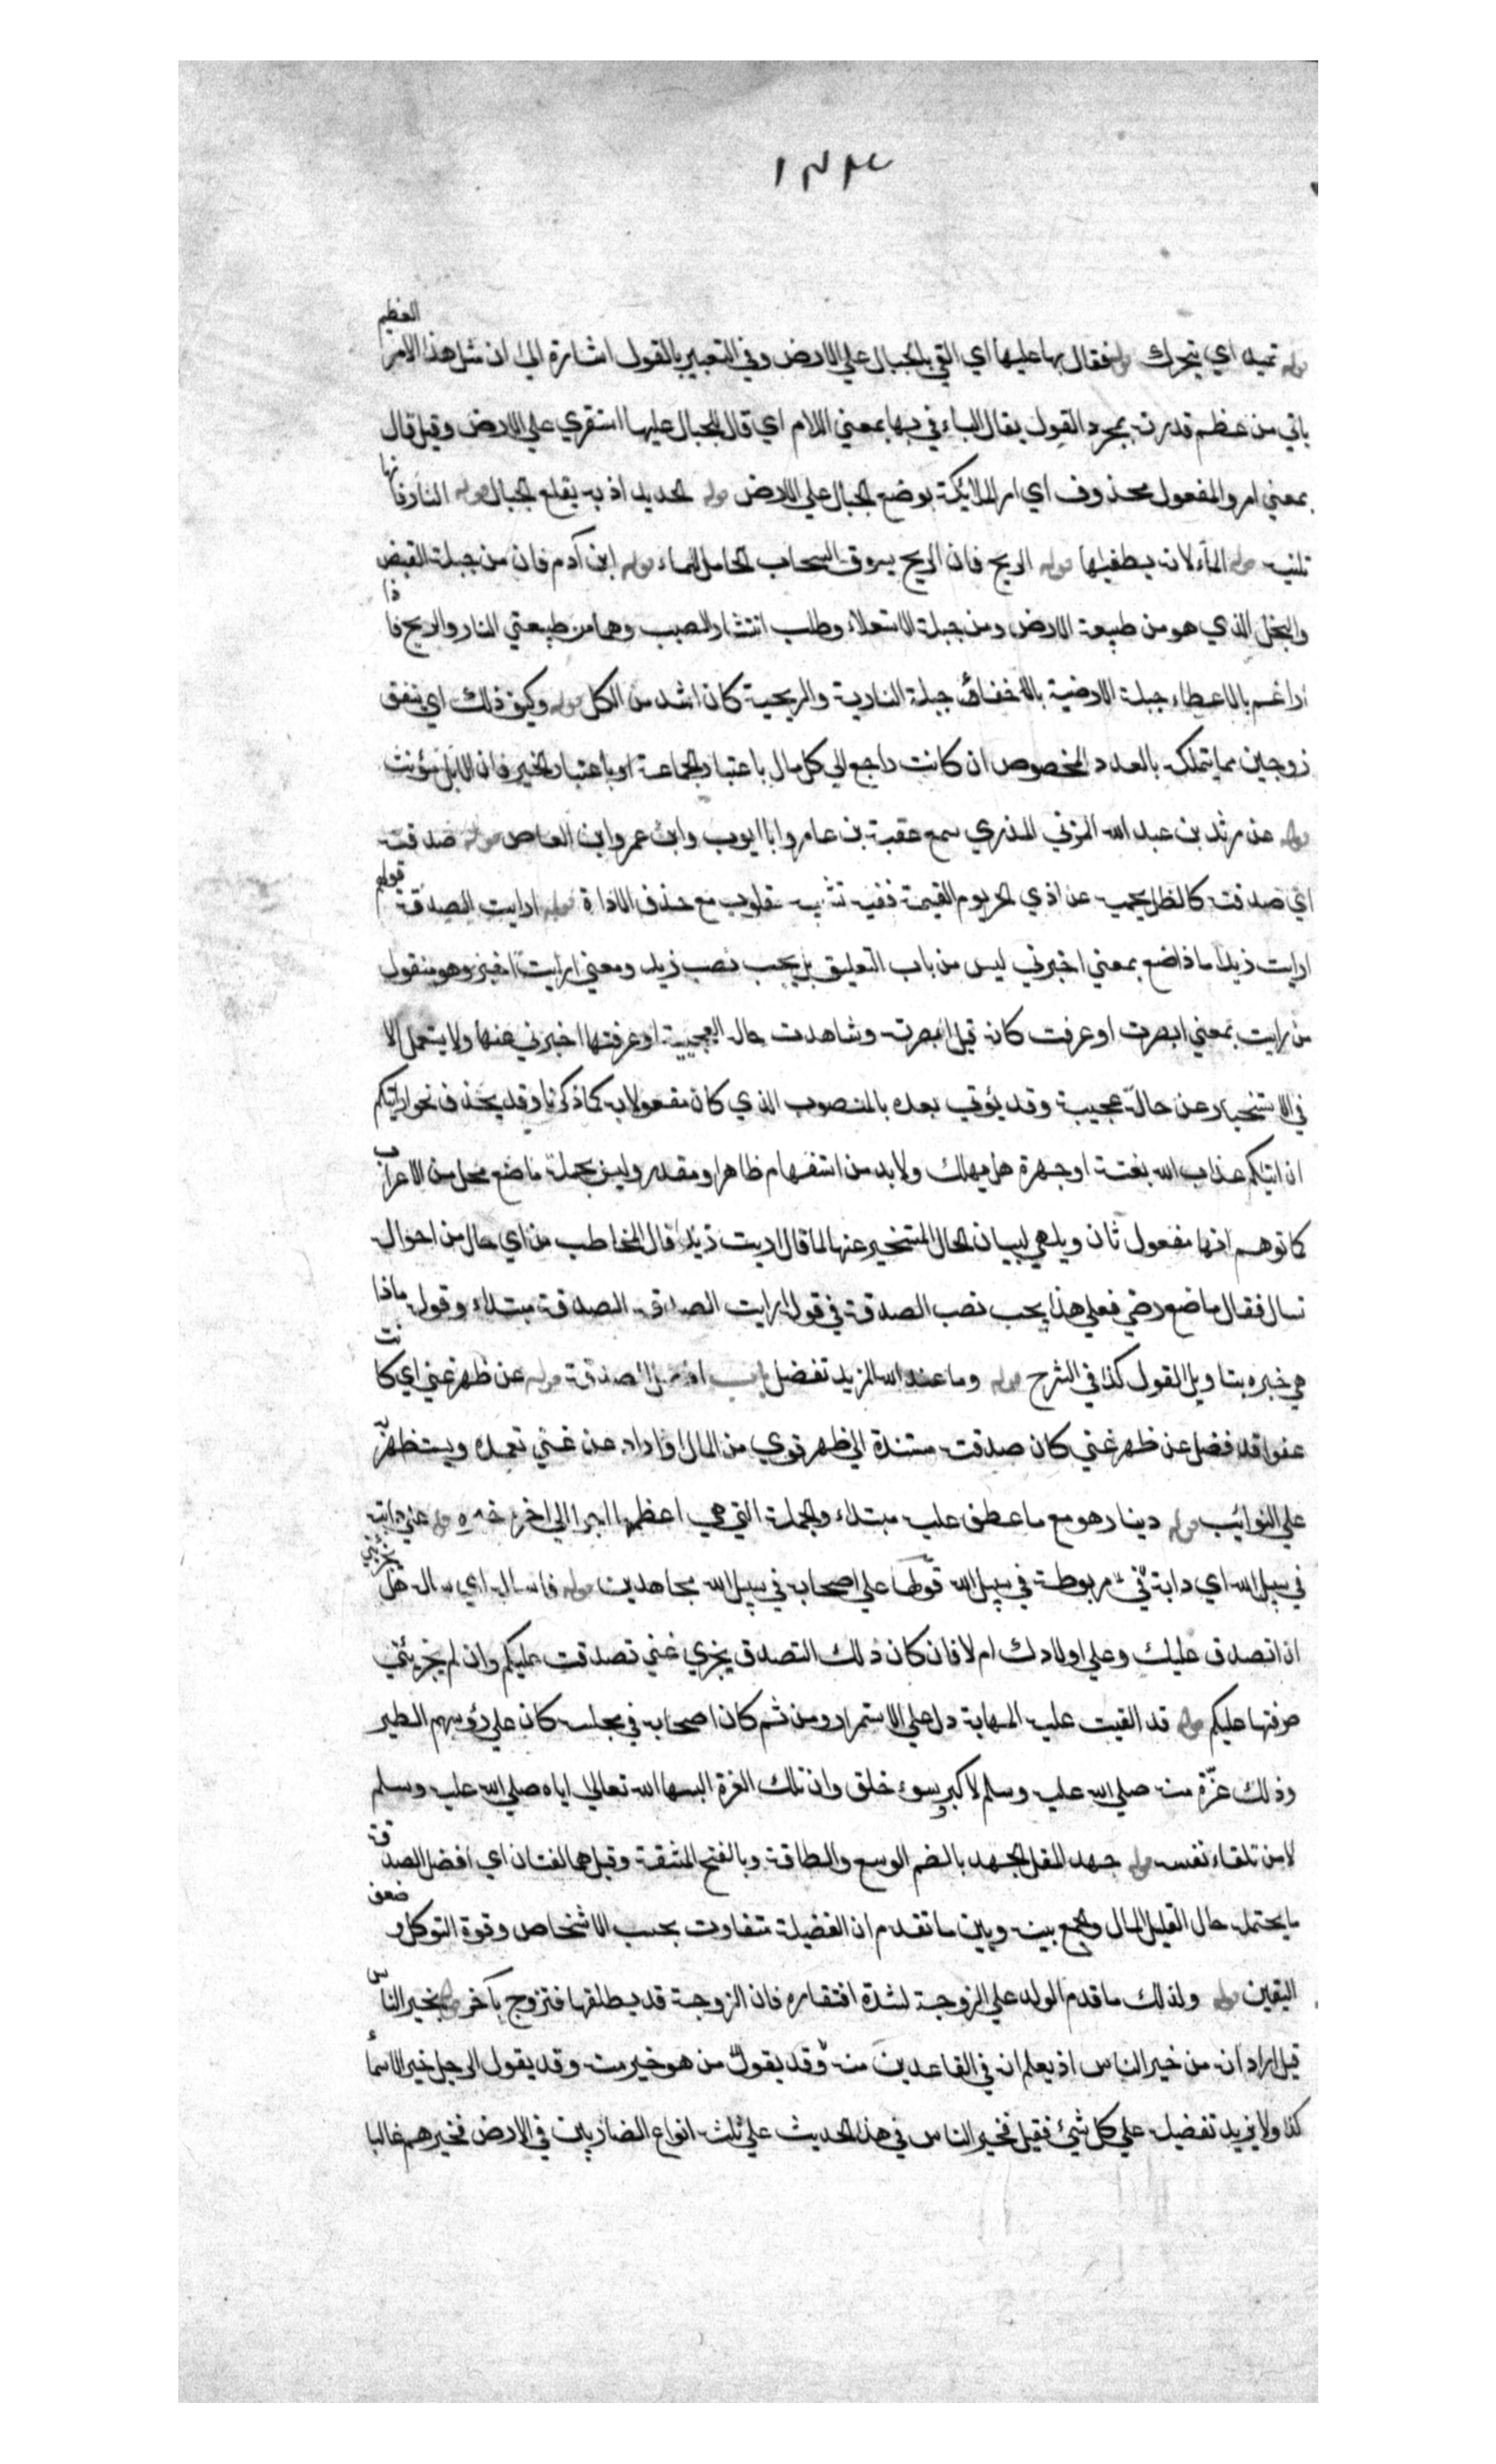 ١٣٤
العظيم
قوله تميد اي يتحرك قوله فقال بها عليها اي القي بالجبال علي الارض وفي التعبير بالقول اشارة الي ان مثل هذا الامر
ياتي من عظيم قدرته بمجرد القول يقال الباء في بها بمعني اللام اي قال للجبال عليها استقري علي الارض وقيل قال
بمعني امر والمفعول محذوف اي امر الملائكة بوضع الجبال علي الارض قوله الحديد اذ به يقلع الجبال قوله النار فانها
تلينه قوله الماء لانه يطفيها قوله الريح فان الريح يسوق السحاب الحامل للماء قوله ابن آدم فان من جبلة القبض
والبخل الذي هو من طبيعة الارض ومن جبلة الاستعلاء وطلب انتشار الصيت وهما من طبيعتي النار والريح فاذا
ارغم بالاعطاء جبلة الارضية بالاخفاء جبلة النارية والريحية كان اشد من الكل قوله وكيف ذلك اي ينفق
زوجين مما يتملك بالعدد المخصوص ان كانت راجع الي كل مال باعتبار الجماعة او باعتبار الخبر فان الابل مؤنث
قوله عن مرثد بن عبد الله المزني المذري سمع عقبة بن عامر وابا ايوب وابن عمر وابن العاص قوله صدقته
اي صدقته كالظل يحميه عن اذي الحر يوم القيمة ففيه تشبيه مقلوب مع حذف الاداة قوله ارايت الصدقة قولهم
ارايت زيدا ماذا صنع بمعني اخبرني ليس من باب التعليق بل يجب نصب زيد ومعني ارايت اخبر وهو منقول
من رايت بمعني ابصرت او عرفت كانه قيل ابصرته وشاهدت حاله العجيبة او عرفتها اخبرني عنها ولا يستعمل الا
في الاستخبار عن حالة عجيبة وقد يؤتي بعده بالمنصوب الذي كان مفعولا به كما ذكرنا وقد يحذف نحو ارايتكم
ان اتيكم عذاب الله بغتة او جهرة هل يهلك ولا بد من استفهام ظاهر او مقدر وليس بجملة ما صنع محل من الاعراب
كما توهم انها مفعول ثان وبل هي لبيان الحال المستخبر عنها لما قال اريت زيدا قال المخاطب من اي حال من احواله
تسال فقال ما صنع رضي فعلي هذا يجب نصب الصدقة في قوله ارايت الصدقة الصدقة مبتداء وقوله ماذا
هي خبره بتاويل القول كذا في الشرح قوله وما عند الله المزيد تفضل باب افضل الصدقة قوله عن ظهر غني اي كانت
عفوا قد فضل عن ظهر غني كان صدقته مستندة الي ظهر قوي من المال او اراد عن غني تعمده ويستظهر به
علي النوائب قوله دينار هو مع ما عطف عليه مبتداء والجملة التي هي اعظمها اجرا الي اخره خبره قوله علي دابته
في سبيل الله اي دابة مربوطة في سبيل الله قوله علي اصحابه في سبيل الله مجاهدين قوله فاساله اي ساله هل
ان اتصدق عليك وعلي اولادك ام لا فان كان ذلك التصدق يجزي عني تصدقت عليكم وان لم يجزئني
صرفتها عليكم قوله قد القيت عليه المهابة دل علي الاستمرار ومن ثم كان اصحابه في مجلسه كان علي رؤسهم الطير
وذلك عزة منه صلي الله عليه وسلم لا كبر وسوء خلق وان تلك العزة البسها الله تعالي اياه صلي الله عليه وسلم
لا من تلقاء نفسه قوله جهد المقل الجهد بالضم الوسع والطاقة وبالفتح المشقة وقيل هما لغتان اي افضل الصدقة
ما يحتمله حال القليل المال والجمع بينه وبين ما تقدم ان الفضيلة متفاوت بحسب الاشخاص وقوة التوكل وضعف
اليقين قوله ولذلك ما قدم الولد علي الزوجة لشدة افتقاره فان الزوجة قد يطلقها فتزوج بآخر قوله بخير الناس
قيل اراد انه من خير الناس اذ يعلم ان في القاعدين منه وقد يقول من هو خير منه وقد يقول الرجل خير الاسماء
كذا ولا يريد تفضيله علي كل شيئ فقيل فخير الناس في هذا الحديث علي ثلث انواع الضاربين في الارض فخيرهم غالبا